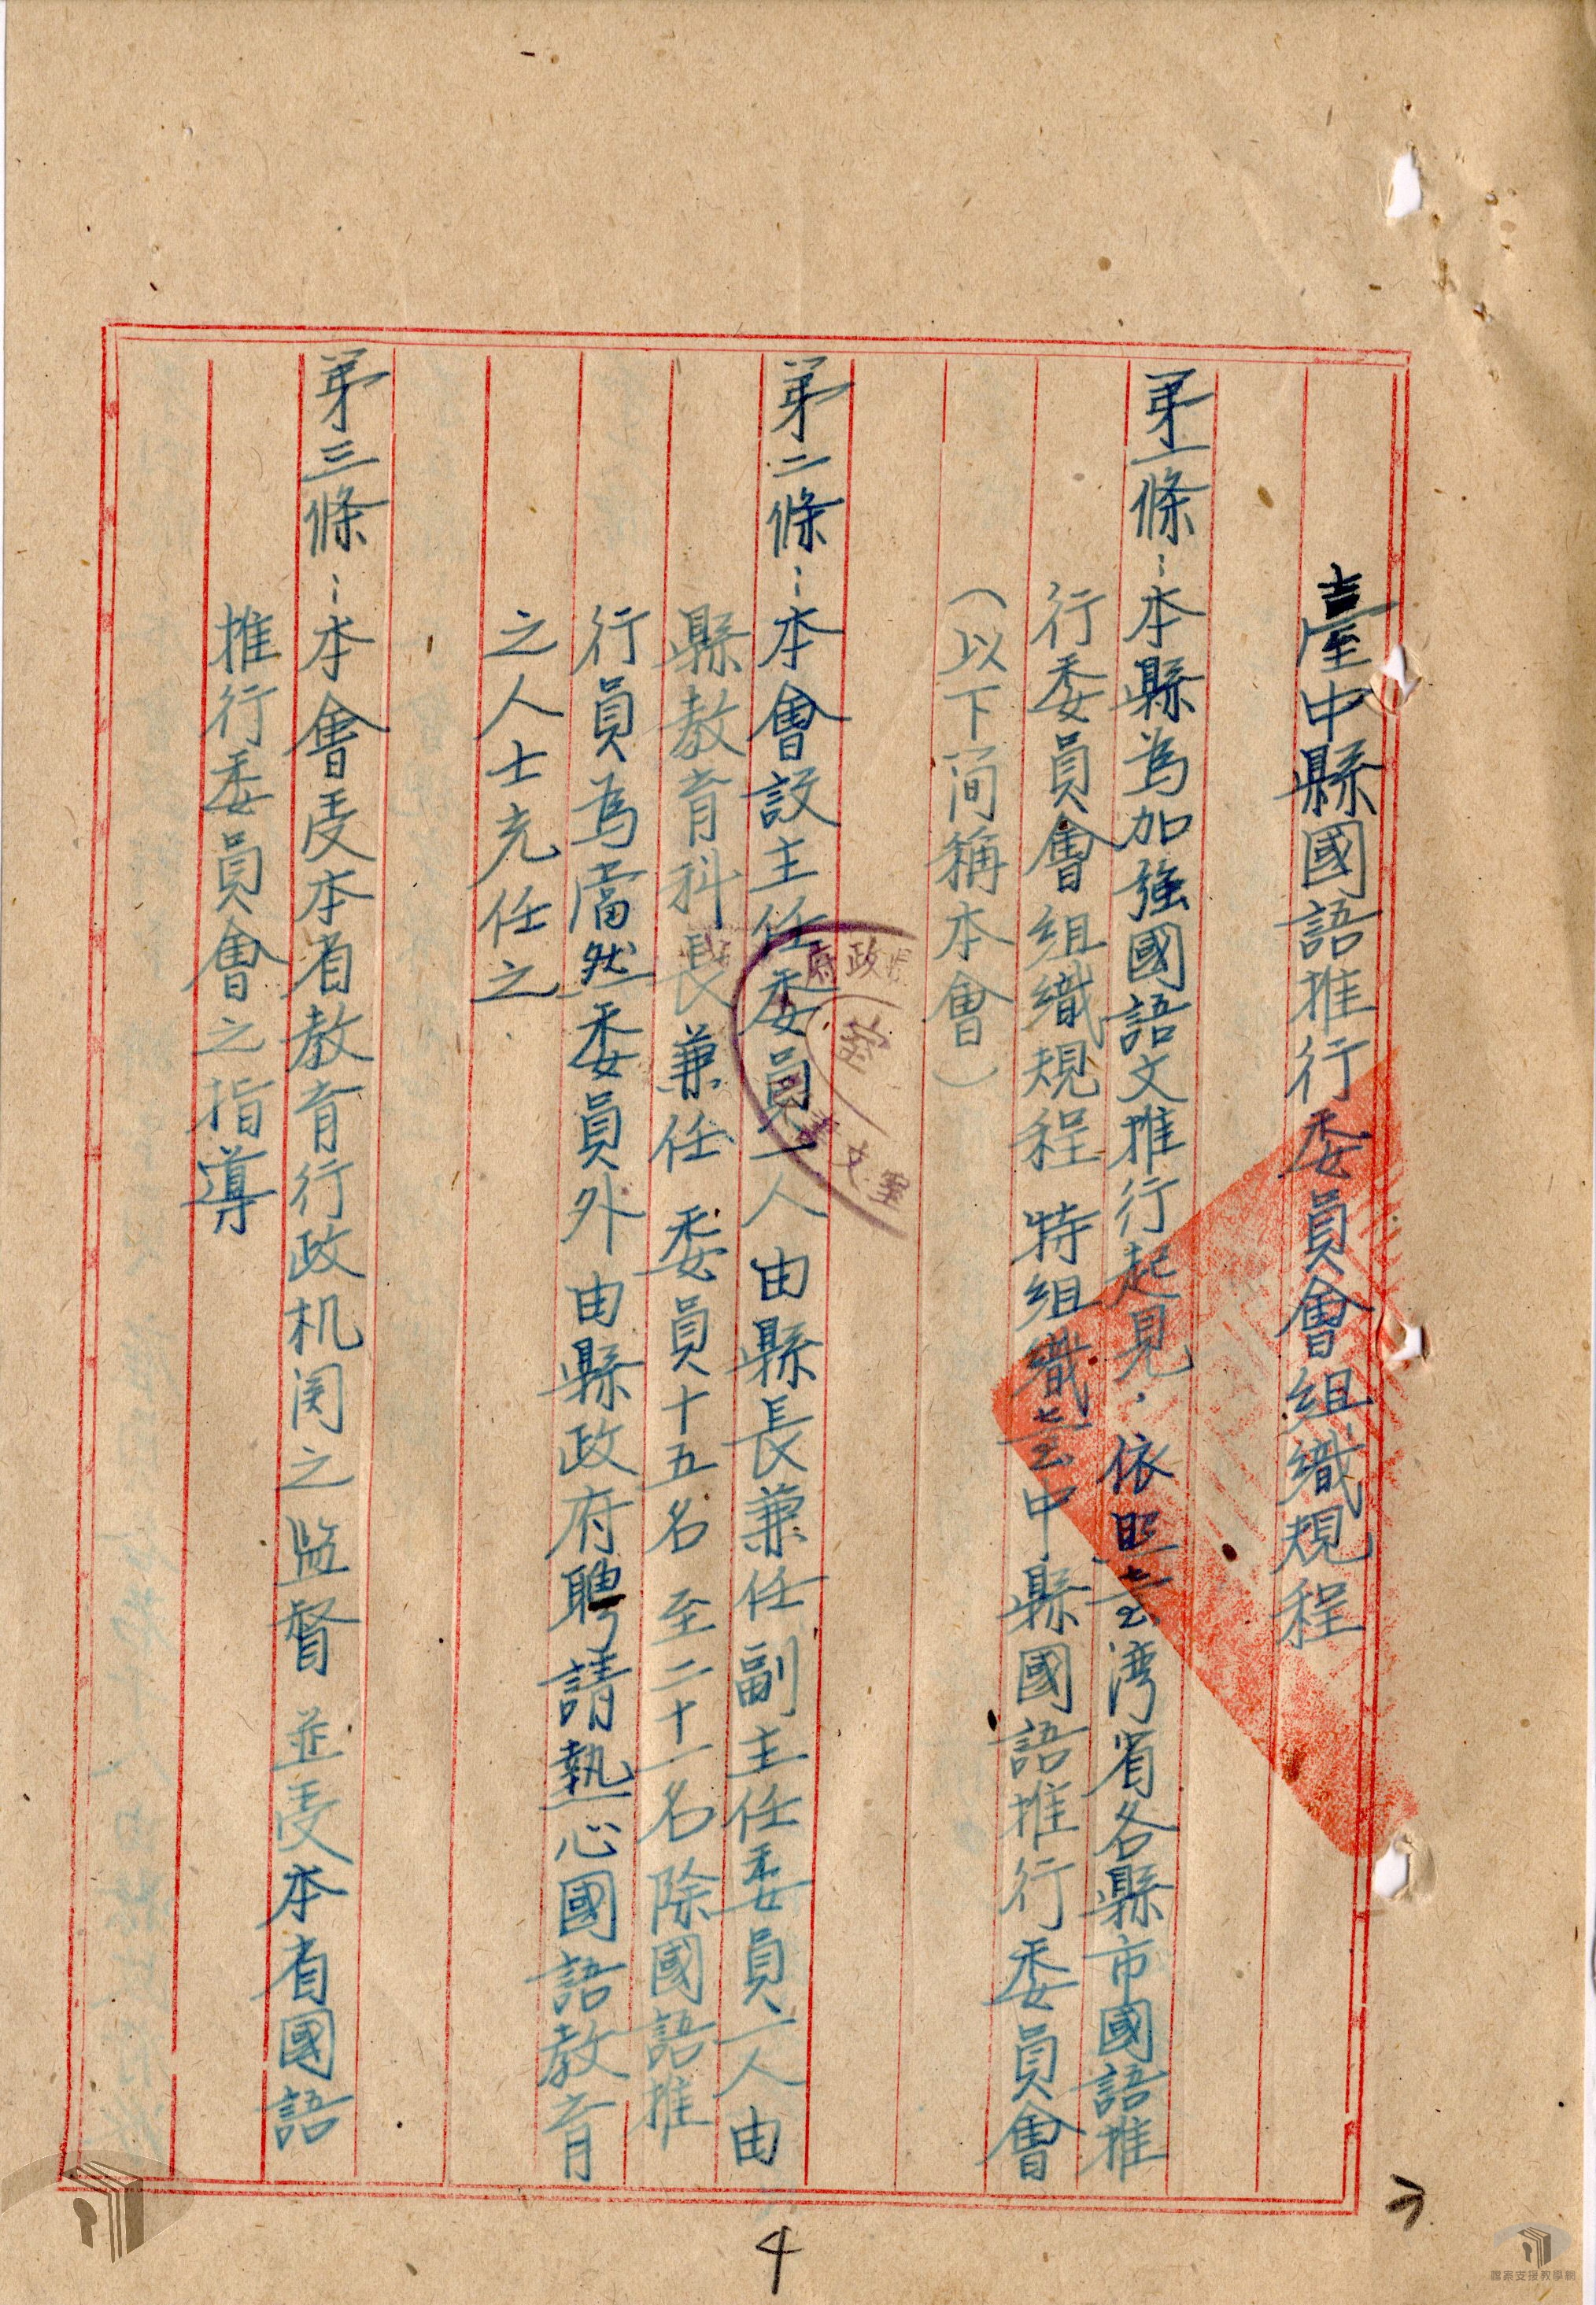 臺中縣國語推行委員會組織規程
第一條:本縣為加強國語文推行起見,依照臺灣省各縣市國語推
行委員會組織規程 特組織臺中縣國語推行委員會
(以下简稱本會)
第二條:本會設主任委員一人由縣長兼任副主任委員一人由
縣教育科長兼任 委員十五名至二十一名除國語推
行員為當然委員外由縣政府聘請熱心國語教育
之人士充任之
第三條:本會受本省教育行政机関之監督並受本省國語
推行委員會之指導
4
檔案支援教學網